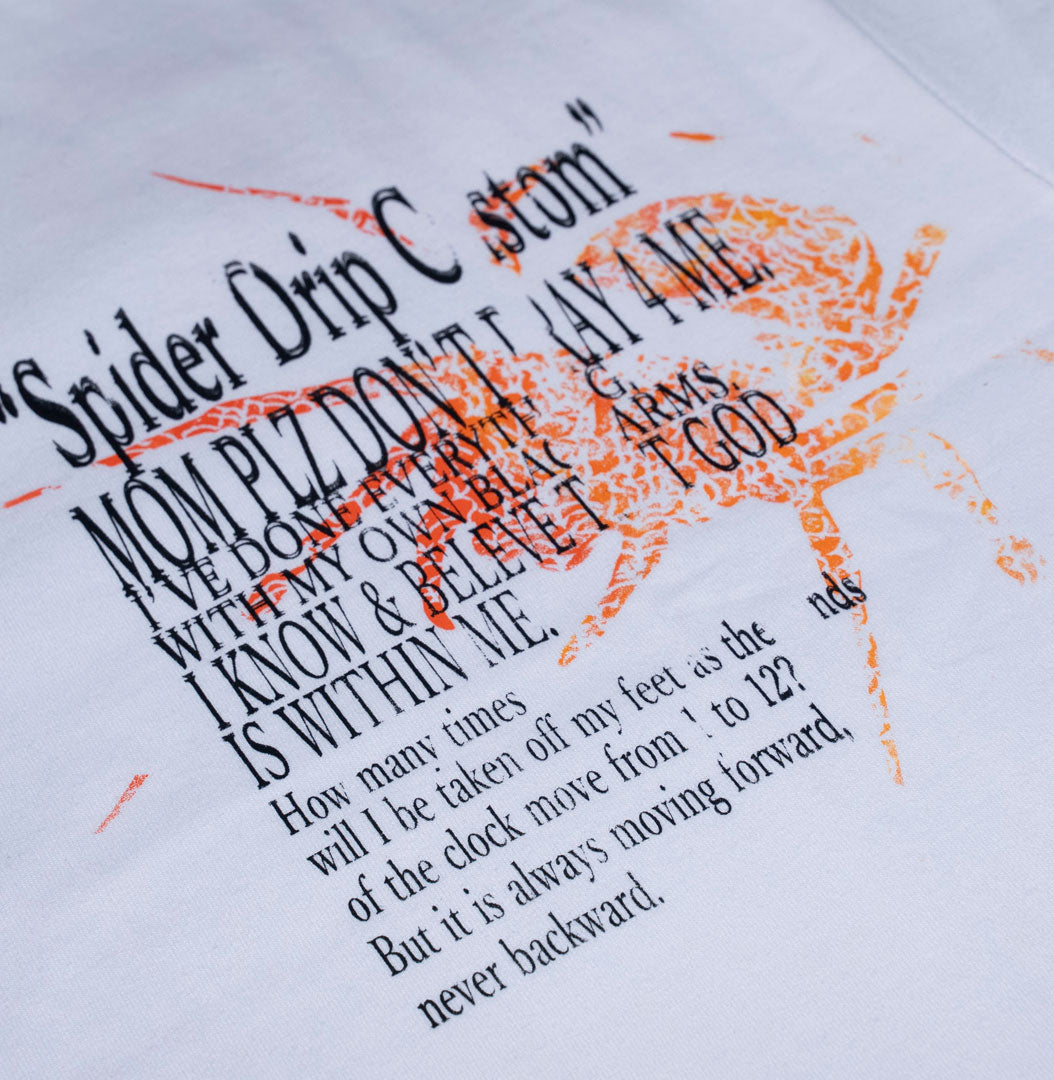 "Spider Drip C stom"
MOM PLZ DON'T AY 4 ME.
I'VE DONE EVERYTH G.
WITH MY OWN BLAC ARMS.
I KNOW & BELEVE T T GOD
IS WITHIN ME.
How many times
will I be taken off my feet as the nds
of the clock move from 1 to 12?
But it is always moving forward,
never backward.